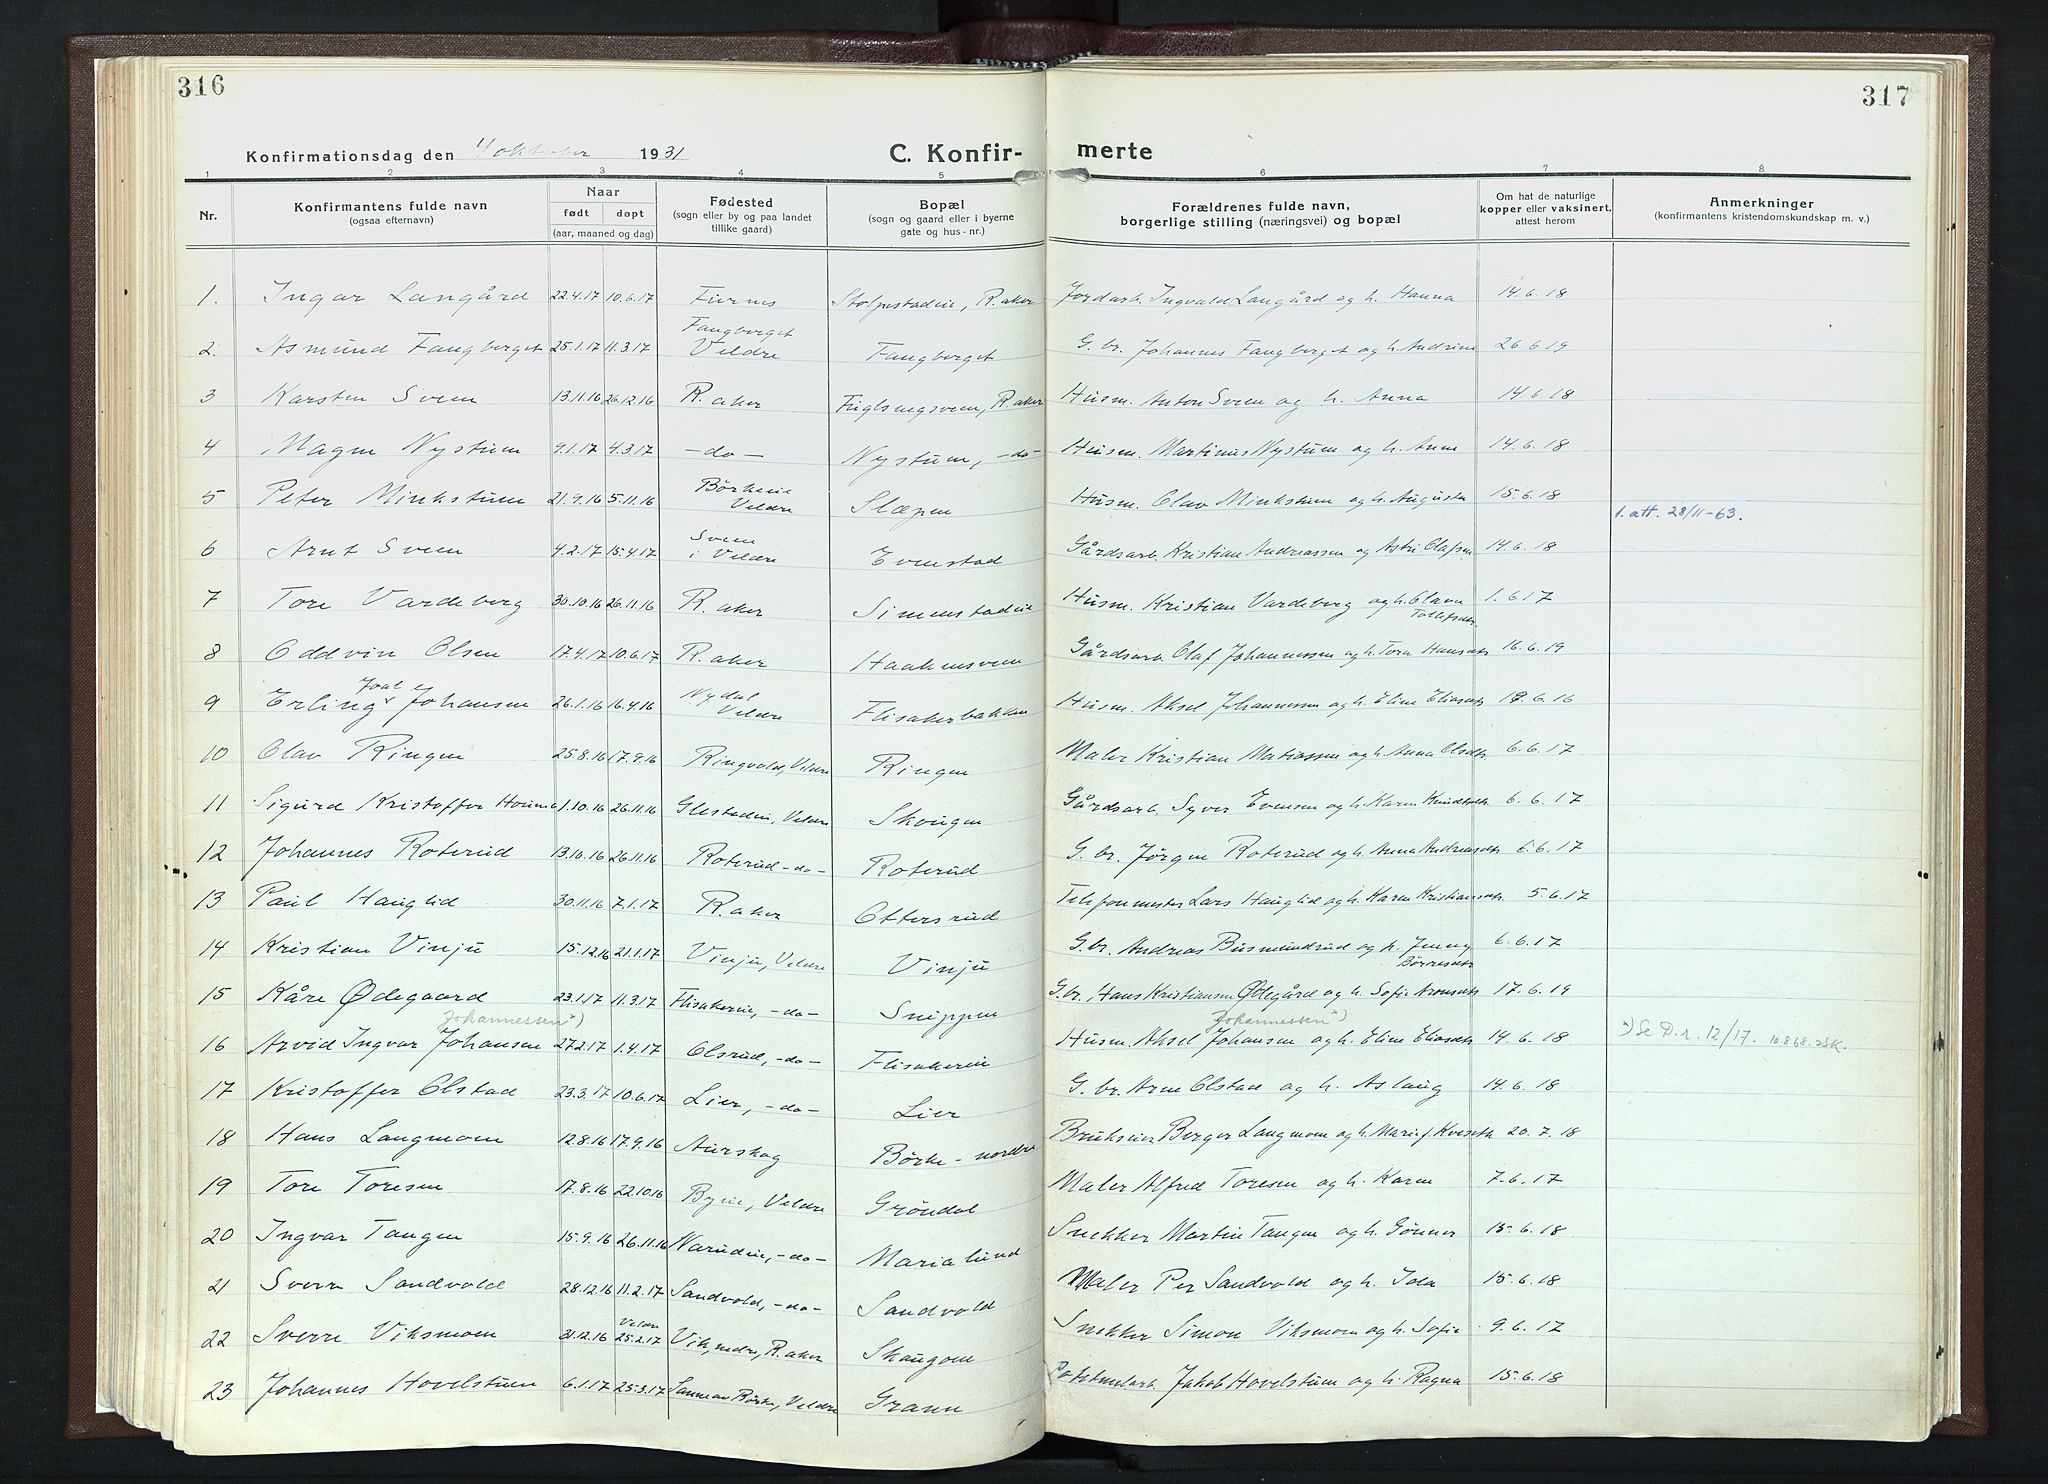 316
317
Konfirmationsdag den 4 oktober 1931
C. Konfir-
merte
1 2 3 4 5 6 7 8
Nr.
Konfirmantens fulde navn
(ogsaa efternavn)
Naar
født døpt
(aar, maaned og dag)
Fødested
(sogn eller by og paa landet
tillike gaard)
Bopæl
(sogn og gaard eller i byerne
gate og hus-nr.)
Forældrenes fulde navn,
borgerlige stilling (næringsvei) og bopæl
Om hat de naturlige
kopper eller vaksinert,
attest herom
Anmerkninger
(konfirmantens kristendomskundskap m. v.)
1. Ingar Langård 22.4.17 10.6.17 Furnes Stolpestadeie, R.aker Jordarb. Ingvald Langård og h. Hanna 14.6.18
Fangberget
2. Asmund Fangberget 25.1.17 11.3.17 Veldre Fangberget G.br. Johannes Fangberget og h. Andrine 26.6.19
3 Karsten Sveen 13.11.16 26.12.16 R.aker Fuglsengsveen, R.aker Husm. Anton Sveen og h. Anna 14.6.18
4 Magne Nystuen 9.1.17 4.3.17 -do- Nystuen, -do- Husm. Martinus Nystuen og h. Anne 14.6.18
5 Peter Minkstuen 21.9.16 5.11.16 Børkeeie Veldre Slæpen Husm. Olav Minkstuen og h. Augusta 15.6.18
1. att. 28/11-63.
6 Arnt Sveen 4.2.17 15.4.17 Sveen i Veldre Evenstad Gårdsarb. Kristian Andreassen og Astri Olafsen 14.6.18
7 Tore Vardeberg 30.10.16 26.11.16 R.aker Simenstadeie Husm. Kristian Vardeberg og h. Olava Tollefsdtr. 1.6.17
8 Oddvin Olsen 17.4.17 10.6.17 R.aker Haakensveen Gårdsarb. Olaf Johannessen og h. Tora Hansdtr 16.6.19
9 Erling Joal Johansen 26.1.16 16.4.16 Nydal Veldre Flisakerbakken Husm. Aksel Johannessen og h. Eline Eliasdtr 19.6.16
10 Olav Ringen 25.8.16 17.9.16 Ringvold, Veldre Ringen Maler Kristian Matiassen og h. Anna Olsdtr. 6.6.17
11 Sigurd Kristoffer Houm 1.10.16 26.11.16 Glestadeie, Veldre Skougen Gårdsarb. Syver Evensen og h. Karen Knudsdtr 6.6.17
12 Johannes Roterud 13.10.16 26.11.16 Roterud -do- Roterud G.br. Jørgen Roterud og h. Anna Andreasdtr 6.6.17
13 Paul Hauglid 30.11.16 7.1.17 R.aker Ottersrud Telefonmester Lars Hauglid og h. Karen Kristiansdtr 5.6.17
14 Kristian Vinju 15.12.16 21.1.17 Vinju, Veldre Vinju G.br. Andreas Busmundrud og h. Jenny Børresdtr 6.6.17
15 Kåre Ødegaard 23.1.17 11.3.17 Flisakereie, -do- Snippen G.br. Hans Kristiansen Ødegård og h. Sofie Aronsdtr 17.6.19
Johannessen*) Johannessen*)
16 Arvid Ingvar Johansen 27.2.17 1.4.17 Olsrud, -do- Flisakereie Husm. Aksel Johansen og h. Eline Eliasdtr 14.6.18 *) Se D.r. 12/17. 10.8.68.
17 Kristoffer Olstad 23.3.17 10.6.17 Lier, -do- Lier G.br. Arne Olstad og h. Aslaug 14.6.18
18 Hans Langmoen 12.8.16 17.9.16 Aurskog Børke-nordre Brukseier Berger Langmoen og h. Marie f. Kveseth 20.7.18
19 Tore Toresen 17.8.16 22.10.16 Byeie, Veldre Grøndal Maler Alfred Toresen og h. Karen 7.6.17
20 Ingvar Tangen 15.9.16 26.11.16 Narudeie, -do- Marialund Snekker Martin Tangen og h. Gønner 15.6.18
21 Sverre Sandvold 28.12.16 11.2.17 Sandvold, -do- Sandvold Maler Per Sandvold og h. Ida 15.6.18
22 Sverre Viksmoen 31.12.16 Veldre 25.2.17 Vik, nedre, R.aker Skaugom Snekker Simon Viksmoen og h. Sofie 9.6.17
23 Johannes Hovelstuen 6.1.17 25.3.17 Børke, Veldre Grann Jakob Hovelstuen og h. Ragna 15.6.18